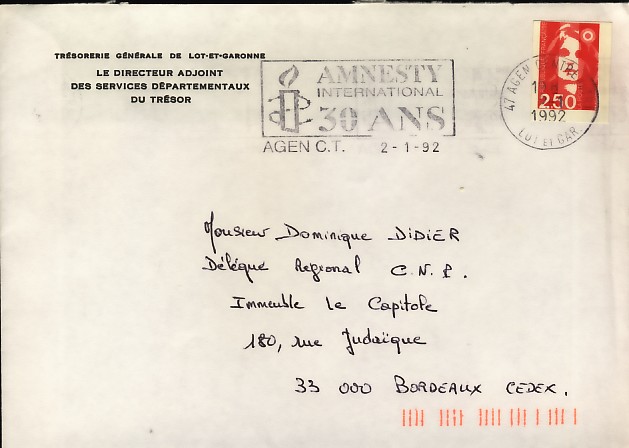 TRÉSORERIE GÉNÉRALE DE LOT-ET-GARONNE
LE DIRECTEUR ADJOINT
DES SERVICES DÉPARTEMENTAUX
DU TRÉSOR
AMNESTY
INTERNATIONAL
30 ANS
AGEN C.T. 2-1-92
47 AGEN CENTRE
1992
LOT ET GAR.
2,50
Monsieur Dominique DIDIER
Délégué Régional C.N.P.
Immeuble le Capitole
180, rue Judaïque
33 000 BORDEAUX CEDEX.